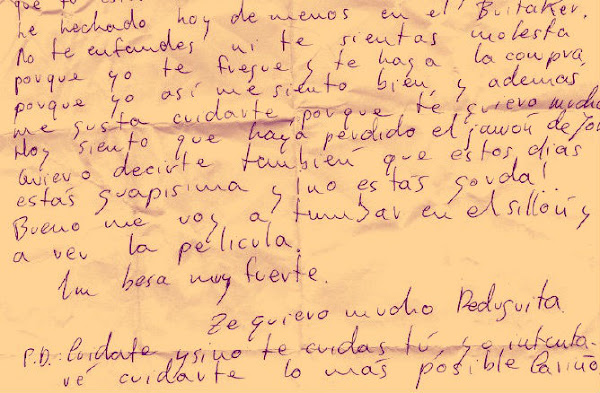 que
he hechado hoy de menos en el Buitaker.
No te enfandes ni te sientas molesta
porque yo te fuegue y te haga la compra,
porque yo así me siento bien, y ademas
me gusta cuidarte, porque te quiero mucho
Hoy siento que haya perdido el jamón de
Quiero decirte también que estos días
estás guapisima y ¡no estás gorda!
Bueno me voy a tumbar en el sillón y
a ver la película.
Un beso muy fuerte.
Te quiero mucho Peduguita.
P.D.: Cuidate, y sino te cuidas tú, yo intenta-
ré cuidarte lo más posible Cariño